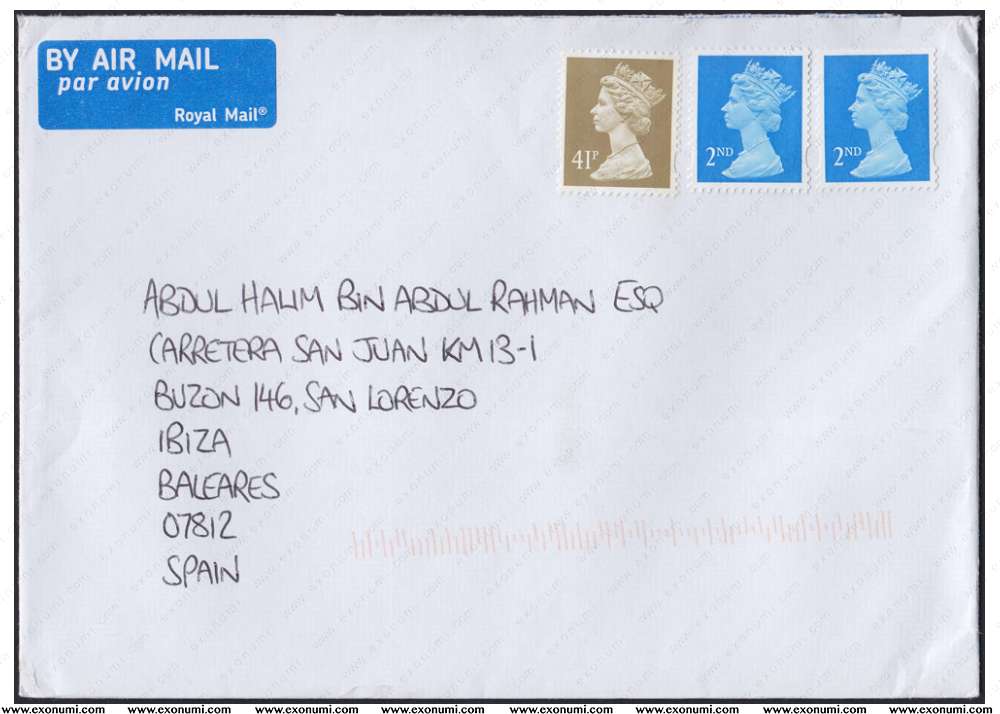 BY AIR MAIL
par avion
Royal Mail®
41P
2ND
2ND
ABDUL HALIM BIN ABDUL RAHMAN ESQ
CARRETERA SAN JUAN KM 13-1
BUZON 146, SAN LORENZO
IBIZA
BALEARES
07812
SPAIN
www.exonumi.com www.exonumi.com www.exonumi.com www.exonumi.com www.exonumi.com www.exonumi.com www.exonumi.com www.exonumi.com